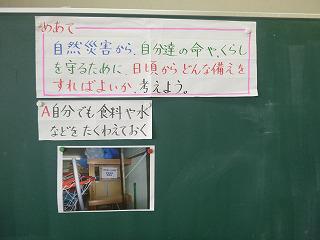 めあて
自然災害から、自分達の命や、くらし
を守るために、日頃からどんな備えを
すればよいか、考えよう。
A自分でも食料や水
などをたくわえておく